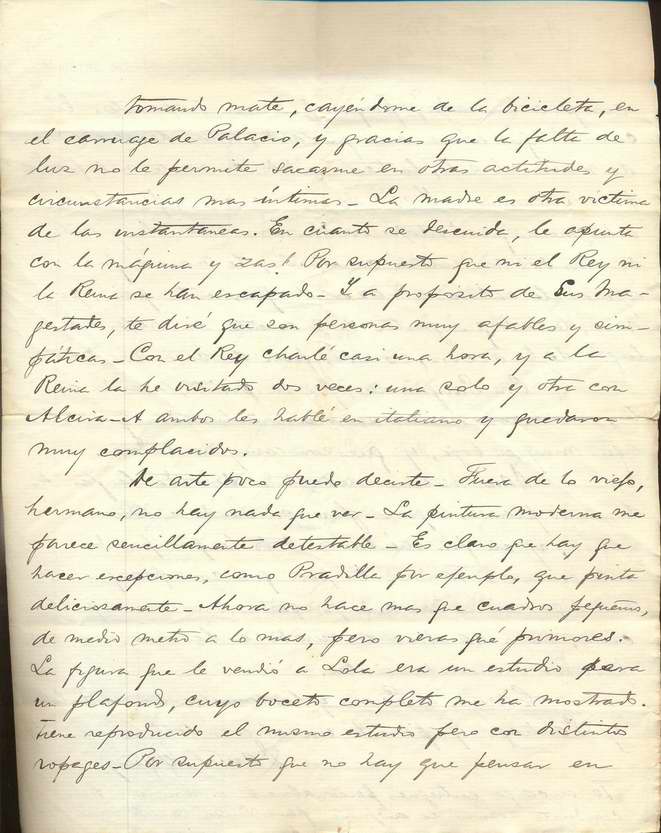 tomando mate, cayéndome de la bicicleta, en
el carruage de Palacio, y gracias que la falta de
luz no le permite sacarme en otras actitudes y
circunstancias mas íntimas_ La madre es otra victima
de las instantaneas. En cuanto se descuida, le apunta
con la máquina y zas! Por supuesto que ni el Rey ni
la Reina se han escapado_ Y a propósito de Sus Ma-
gestades, te diré que son personas muy afables y sim-
páticas_ Con el Rey charlé casi una hora, y a la
Reina la he visitado dos veces: una solo y otra con
Alcira_ A ambos les hablé en italiano y quedaron
muy complacidos.
De arte poco puedo decirte_ Fuera de lo viejo,
hermano, no hay nada que ver_ La pintura moderna me
parece sencillamente detestable_ Es claro que hay que
hacer escepciones, como Pradilla por ejemplo, que pinta
deliciosamente_ Ahora no hace mas que cuadros pequeños,
de medio metro a lo mas, pero vieras qué primores.
La figura que le vendió a Lola era un estudio para
un plafond, cuyo boceto completo me ha mostrado.
Tiene reproducido el mismo estudio pero con distintos
ropages_ Por supuesto que no hay que pensar en